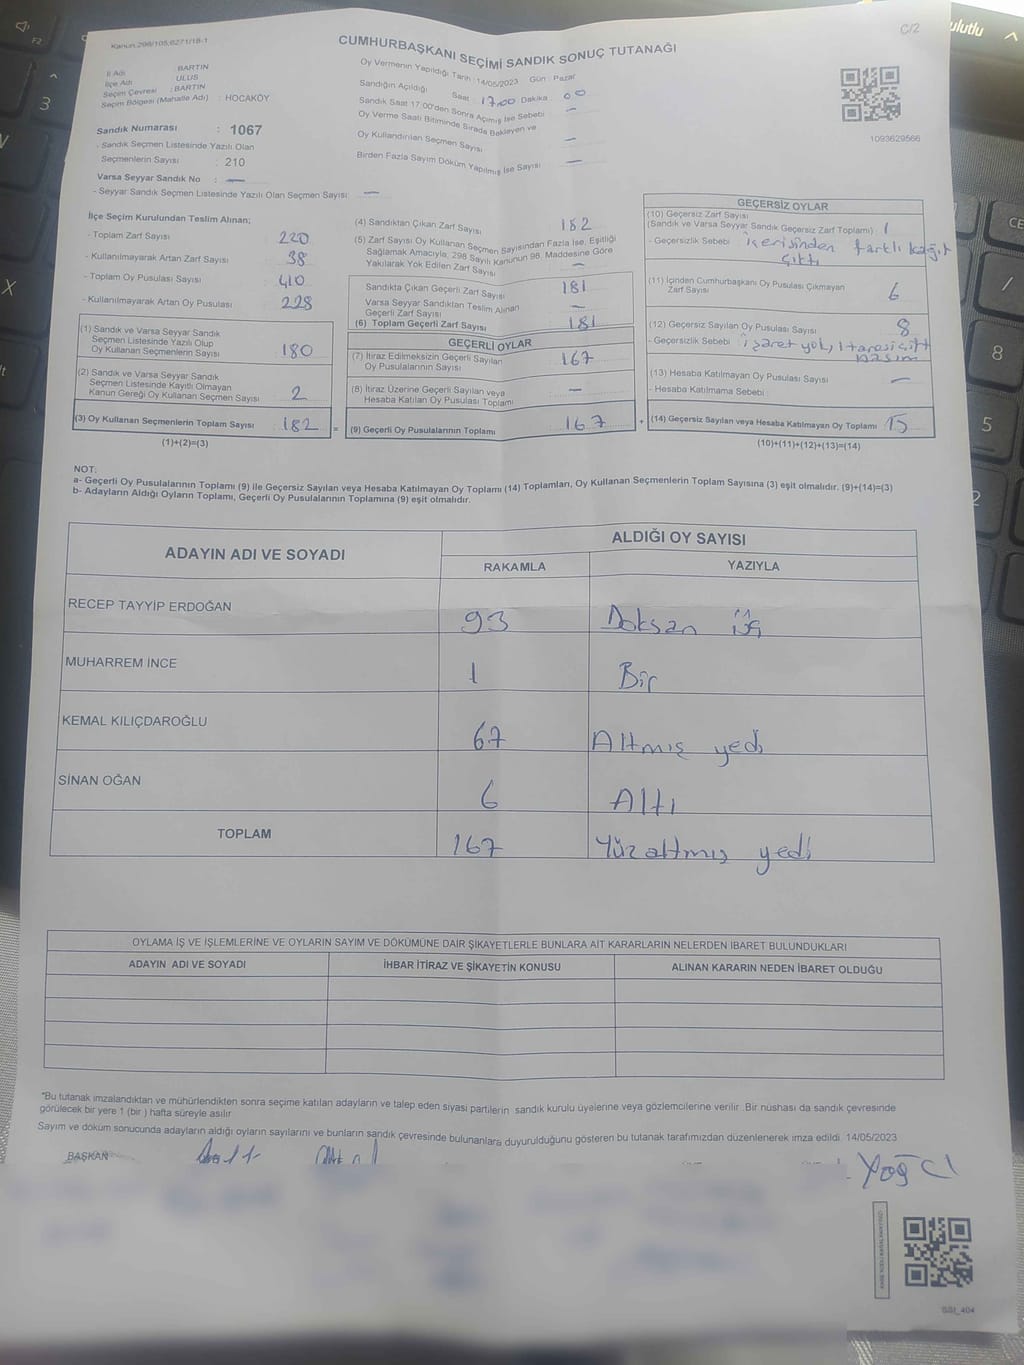 Kanun,298/105;6271/18-1
CUMHURBAŞKANI SEÇİMİ SANDIK SONUÇ TUTANAĞI
C/2
ulutlu
İl Adı : BARTIN
İlçe Adı : ULUS
Seçim Çevresi : BARTIN
Seçim Bölgesi (Mahalle Adı) : HOCAKÖY
Sandık Numarası : 1067
- Sandık Seçmen Listesinde Yazılı Olan
Seçmenlerin Sayısı : 210
Varsa Seyyar Sandık No : —
- Seyyar Sandık Seçmen Listesinde Yazılı Olan Seçmen Sayısı: —
Oy Vermenin Yapıldığı Tarih : 14/05/2023 Gün : Pazar
Sandığın Açıldığı Saat : 17:00 Dakika : 00
Sandık Saat 17:00'den Sonra Açılmış İse Sebebi —
Oy Verme Saati Bitiminde Sırada Bekleyen ve
Oy Kullandırılan Seçmen Sayısı —
Birden Fazla Sayım Döküm Yapılmış İse Sayısı —
1093629566
İlçe Seçim Kurulundan Teslim Alınan;
- Toplam Zarf Sayısı 220
- Kullanılmayarak Artan Zarf Sayısı 38
- Toplam Oy Pusulası Sayısı 410
- Kullanılmayarak Artan Oy Pusulası 228
(1) Sandık ve Varsa Seyyar Sandık
Seçmen Listesinde Yazılı Olup
Oy Kullanan Seçmenlerin Sayısı 180
(2) Sandık ve Varsa Seyyar Sandık
Seçmen Listesinde Kayıtlı Olmayan
Kanun Gereği Oy Kullanan Seçmen Sayısı 2
(3) Oy Kullanan Seçmenlerin Toplam Sayısı 182 =
(1)+(2)=(3)
(4) Sandıktan Çıkan Zarf Sayısı 182
(5) Zarf Sayısı Oy Kullanan Seçmen Sayısından Fazla İse, Eşitliği
Sağlamak Amacıyla, 298 Sayılı Kanunun 98. Maddesine Göre
Yakılarak Yok Edilen Zarf Sayısı —
Sandıkta Çıkan Geçerli Zarf Sayısı 181
Varsa Seyyar Sandıktan Teslim Alınan
Geçerli Zarf Sayısı —
(6) Toplam Geçerli Zarf Sayısı 181
GEÇERLİ OYLAR
(7) İtiraz Edilmeksizin Geçerli Sayılan
Oy Pusulalarının Sayısı 167
(8) İtiraz Üzerine Geçerli Sayılan veya
Hesaba Katılan Oy Pusulası Toplamı —
(9) Geçerli Oy Pusulalarının Toplamı 167 +
GEÇERSİZ OYLAR
(10) Geçersiz Zarf Sayısı
(Sandık ve Varsa Seyyar Sandık Geçersiz Zarf Toplamı) 1
- Geçersizlik Sebebi içerisinden farklı kağıt
çıktı
(11) İçinden Cumhurbaşkanı Oy Pusulası Çıkmayan
Zarf Sayısı 6
(12) Geçersiz Sayılan Oy Pusulası Sayısı 8
- Geçersizlik Sebebi : işaret yok, 1 tanesi çift
basım
(13) Hesaba Katılmayan Oy Pusulası Sayısı —
- Hesaba Katılmama Sebebi
(14) Geçersiz Sayılan veya Hesaba Katılmayan Oy Toplamı 15
(10)+(11)+(12)+(13)=(14)
NOT:
a- Geçerli Oy Pusulalarının Toplamı (9) ile Geçersiz Sayılan veya Hesaba Katılmayan Oy Toplamı (14) Toplamları, Oy Kullanan Seçmenlerin Toplam Sayısına (3) eşit olmalıdır. (9)+(14)=(3)
b- Adayların Aldığı Oyların Toplamı, Geçerli Oy Pusulalarının Toplamına (9) eşit olmalıdır.
ADAYIN ADI VE SOYADI
ALDIĞI OY SAYISI
RAKAMLA YAZIYLA
RECEP TAYYİP ERDOĞAN 93 Doksan üç
MUHARREM İNCE 1 Bir
KEMAL KILIÇDAROĞLU 67 Altmış yedi
SİNAN OĞAN 6 Altı
TOPLAM 167 Yüz altmış yedi
OYLAMA İŞ VE İŞLEMLERİNE VE OYLARIN SAYIM VE DÖKÜMÜNE DAİR ŞİKAYETLERLE BUNLARA AİT KARARLARIN NELERDEN İBARET BULUNDUKLARI
ADAYIN ADI VE SOYADI İHBAR İTİRAZ VE ŞİKAYETİN KONUSU ALINAN KARARIN NEDEN İBARET OLDUĞU
"Bu tutanak imzalandıktan ve mühürlendikten sonra seçime katılan adayların ve talep eden siyasi partilerin sandık kurulu üyelerine veya gözlemcilerine verilir. Bir nüshası da sandık çevresinde
görülecek bir yere 1 (bir ) hafta süreyle asılır.
Sayım ve döküm sonucunda adayların aldığı oyların sayılarını ve bunların sandık çevresinde bulunanlara duyurulduğunu gösteren bu tutanak tarafımızdan düzenlenerek imza edildi. 14/05/2023
BAŞKAN
SSI_404